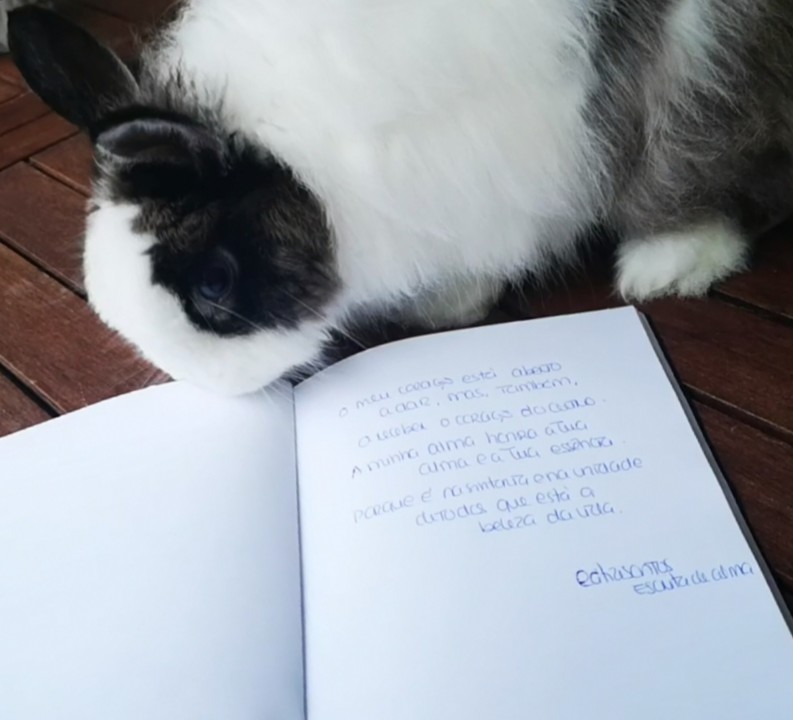 O meu coração está aberto
a dar, mas, também,
a receber o coração do outro.
A minha alma honra a tua
alma e a tua essência.
Porque é na sintonia e na unidade
de todos que está a
beleza da vida.
Escuta de alma